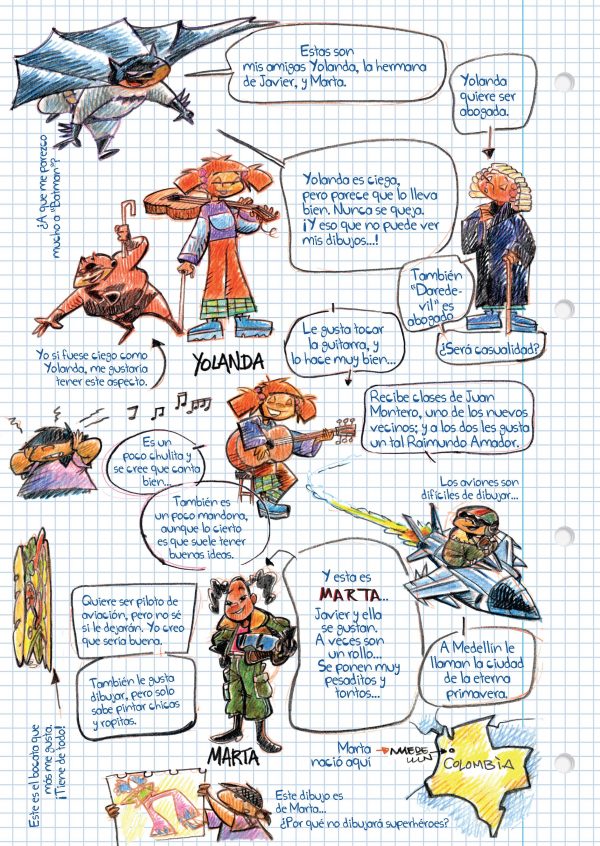 Estas son
mis amigas Yolanda, la hermana
de Javier, y Marta.
Yolanda
quiere ser
abogada.
¿A que me parezco
mucho a "Batman"?
Yolanda es ciega,
pero parece que lo lleva
bien. Nunca se queja.
¡Y eso que no puede ver
mis dibujos...!
También
"Darede-
vil" es
abogado
¿Será casualidad?
Yo si fuese ciego como
Yolanda, me gustaría
tener este aspecto.
YOLANDA
Le gusta tocar
la guitarra, y
lo hace muy bien...
Recibe clases de Juan
Montero, uno de los nuevos
vecinos; y a los dos les gusta
un tal Raimundo Amador.
Es un
poco chulita y
se cree que canta
bien...
También es
un poco mandona,
aunque lo cierto
es que suele tener
buenas ideas.
Los aviones son
difíciles de dibujar...
Y esta es
MARTA...
Javier y ella
se gustan.
A veces son
un rollo...
Se ponen muy
pesaditos y
tontos...
Quiere ser piloto de
aviación, pero no sé
si le dejarán. Yo creo
que sería buena.
También le gusta
dibujar, pero solo
sabe pintar chicas
y ropitas.
A Medellín le
llaman la ciudad
de la eterna
primavera.
MARTA
Este es el bocata que
más me gusta.
¡Tiene de todo!
Marta
nació aquí
COLOMBIA
Este dibujo es
de Marta...
¿Por qué no dibujará superhéroes?